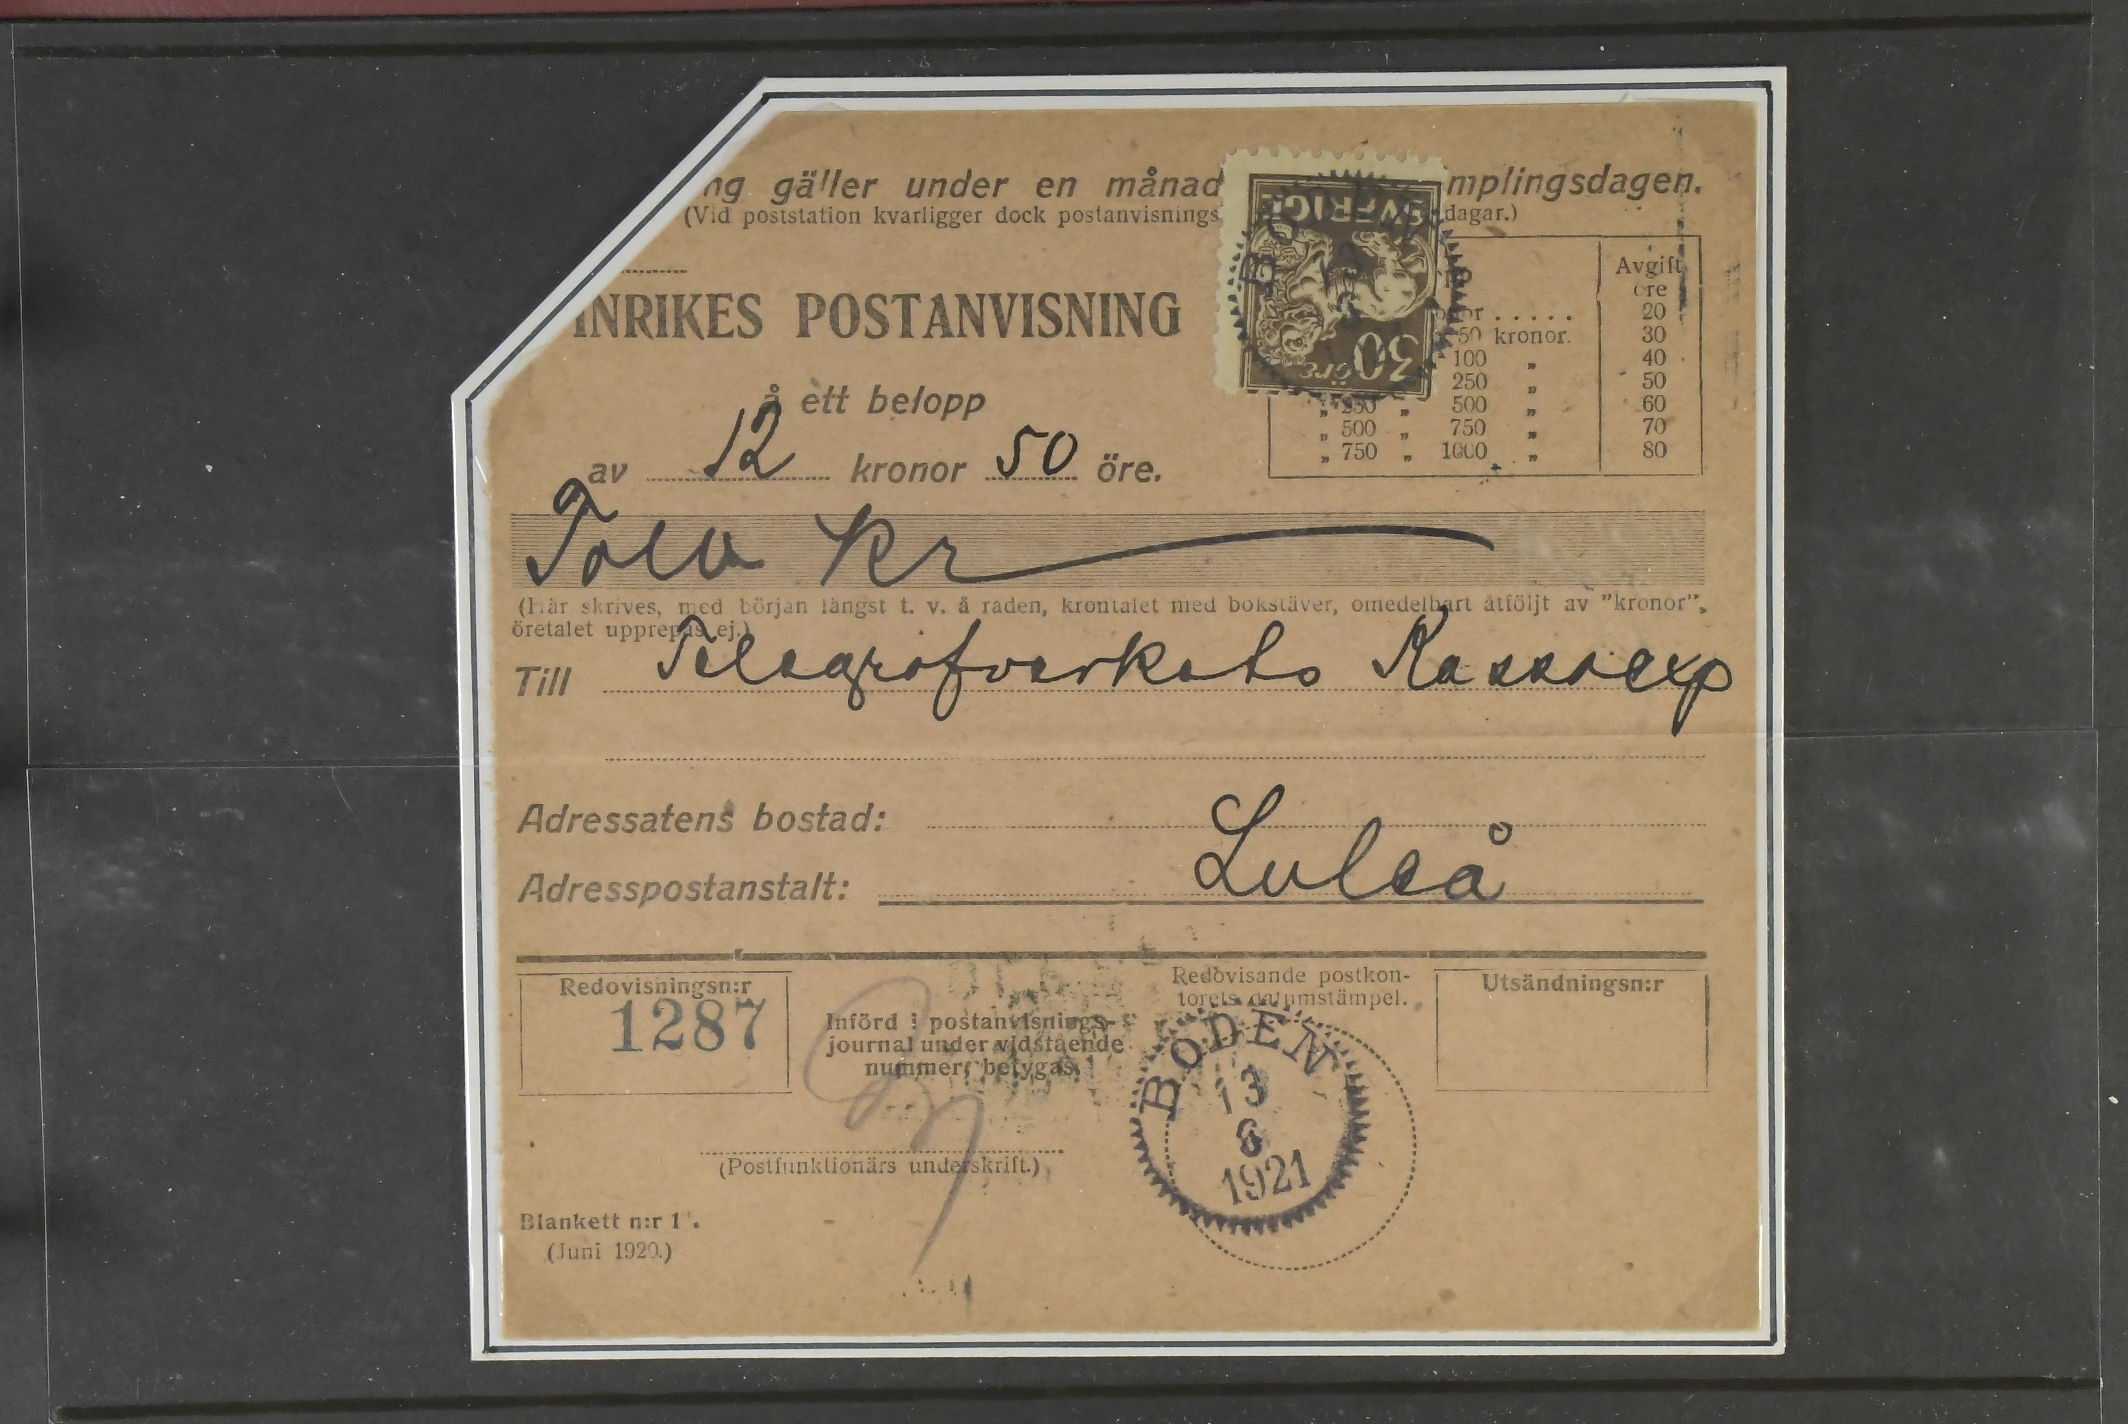 ng gäller under en månad mplingsdagen.
(Vid poststation kvarligger dock postanvisnings dagar.)
INRIKES POSTANVISNING
å ett belopp
av 12 kronor 50 öre.
SVERIGE
30 öre
Avgift
öre
20
50 kronor. 30
100 „ 40
250 „ 50
„ 250 „ 500 „ 60
„ 500 „ 750 „ 70
„ 750 „ 1000 „ 80
Tolv kr
(Här skrives, med början längst t. v. å raden, krontalet med bokstäver, omedelbart åtföljt av "kronor",
öretalet upprepas ej.)
Till Telegrafverkets Kassaexp
Adressatens bostad:
Adresspostanstalt: Luleå
Redovisningsn:r
1287
Införd i postanvisnings-
journal under vidstående
nummer, betygas.
(Postfunktionärs underskrift.)
Redovisande postkon-
torets datumstämpel.
BODEN
13
8
1921
Utsändningsn:r
Blankett n:r 1
(Juni 1920.)